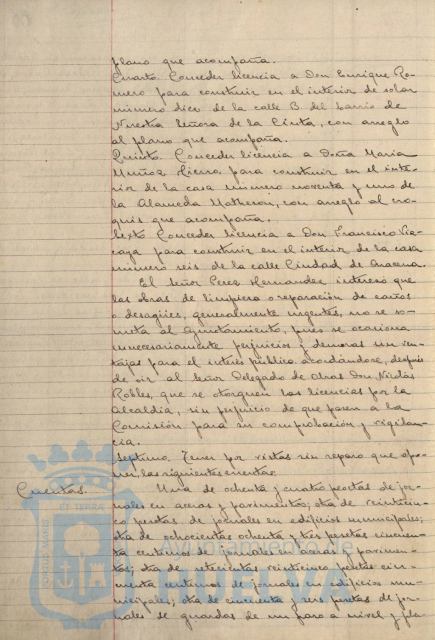 plano que acompaña.
Cuarto. Conceder licencia a Don Enrique Ro-
mero para construir en el interior de solar
número diez de la calle B. del barrio de
Nuestra Señora de la Cinta, con arreglo
al plano que acompaña.
Quinto. Conceder licencia a Doña María
Muñoz para construir en el inte-
rior de la casa número noventa y uno de
la Alameda Matheson, con arreglo al cro-
quis que acompaña.
Sexto. Conceder licencia a Don Francisco Viz-
caya para construir en el interior de la casa
número seis de la calle Ciudad de Aracena.
El Señor Perez Hernandez interesó que
las obras de limpieza o reparación de caños
o desagües, generalmente urgentes, no se so-
meta al Ayuntamiento, pues se ocasiona
innecesariamente perjuicios y demoras sin ven-
tajas para el interés público acordándose, después
de oir al Señor Delegado de Obras Don Nicolas
Robles, que se otorguen las licencias por la
Alcaldía, sin perjuicio de que pasen a la
Comisión para su comprobación y vigilan-
cia.
Septimo. Tener por vistas sin reparo que opo-
ner, las siguientes cuentas
Cuentas. Una de ochenta y cuatro pesetas de jor-
nales en aceras y pavimentos; otra de veinticin-
co pesetas de jornales en edificios municipales;
otra de ochocientas ochenta y tres pesetas cincuen-
ta centimos de jornales en aceras y pavimen-
tos; otra de setecientas veinticinco pesetas cin-
cuenta centimos de jornales en edificios mu-
nicipales; otra de cincuenta y seis pesetas de jor-
nales de guardas de un paso a nivel y
Ayuntamiento de
HUELVA